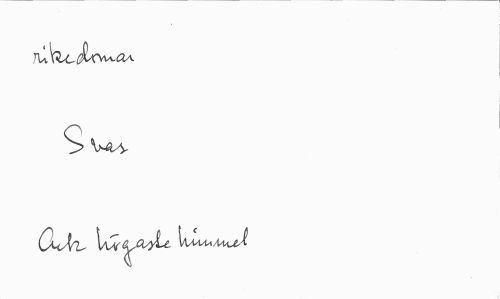 rikedomar
Svar
Ack högaste himmel